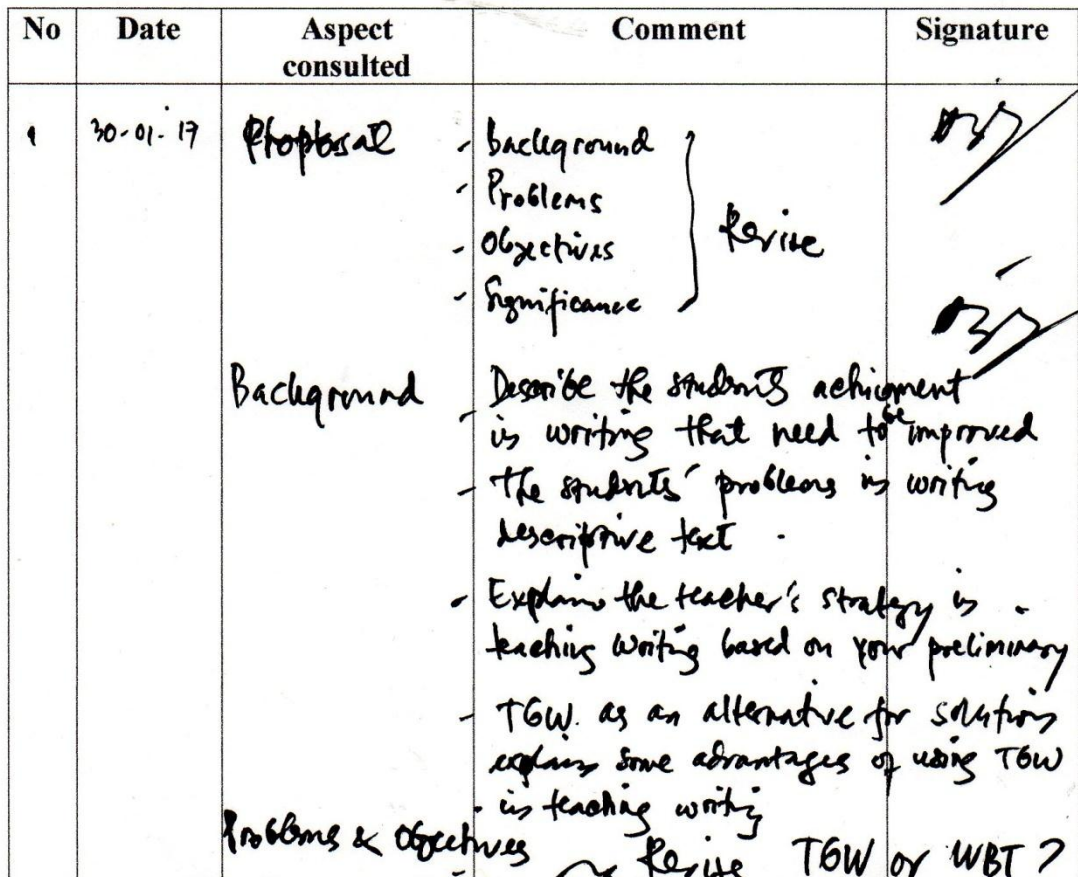 No Date Aspect consulted Comment Signature
1 30-01-17 Proposal - background
- Problems
- Objectives
- Significance
Revise
Background - Describe the students achignment
in writing that need to be improved
- The students' problems in writing
descriptive text.
- Explain the teacher's strategy in
teaching writing based on your preliminary
- TGW. as an alternative for solution
explain some advantages of using TGW
in teaching writing
Problems & Objectives - Revise TGW or WBT?